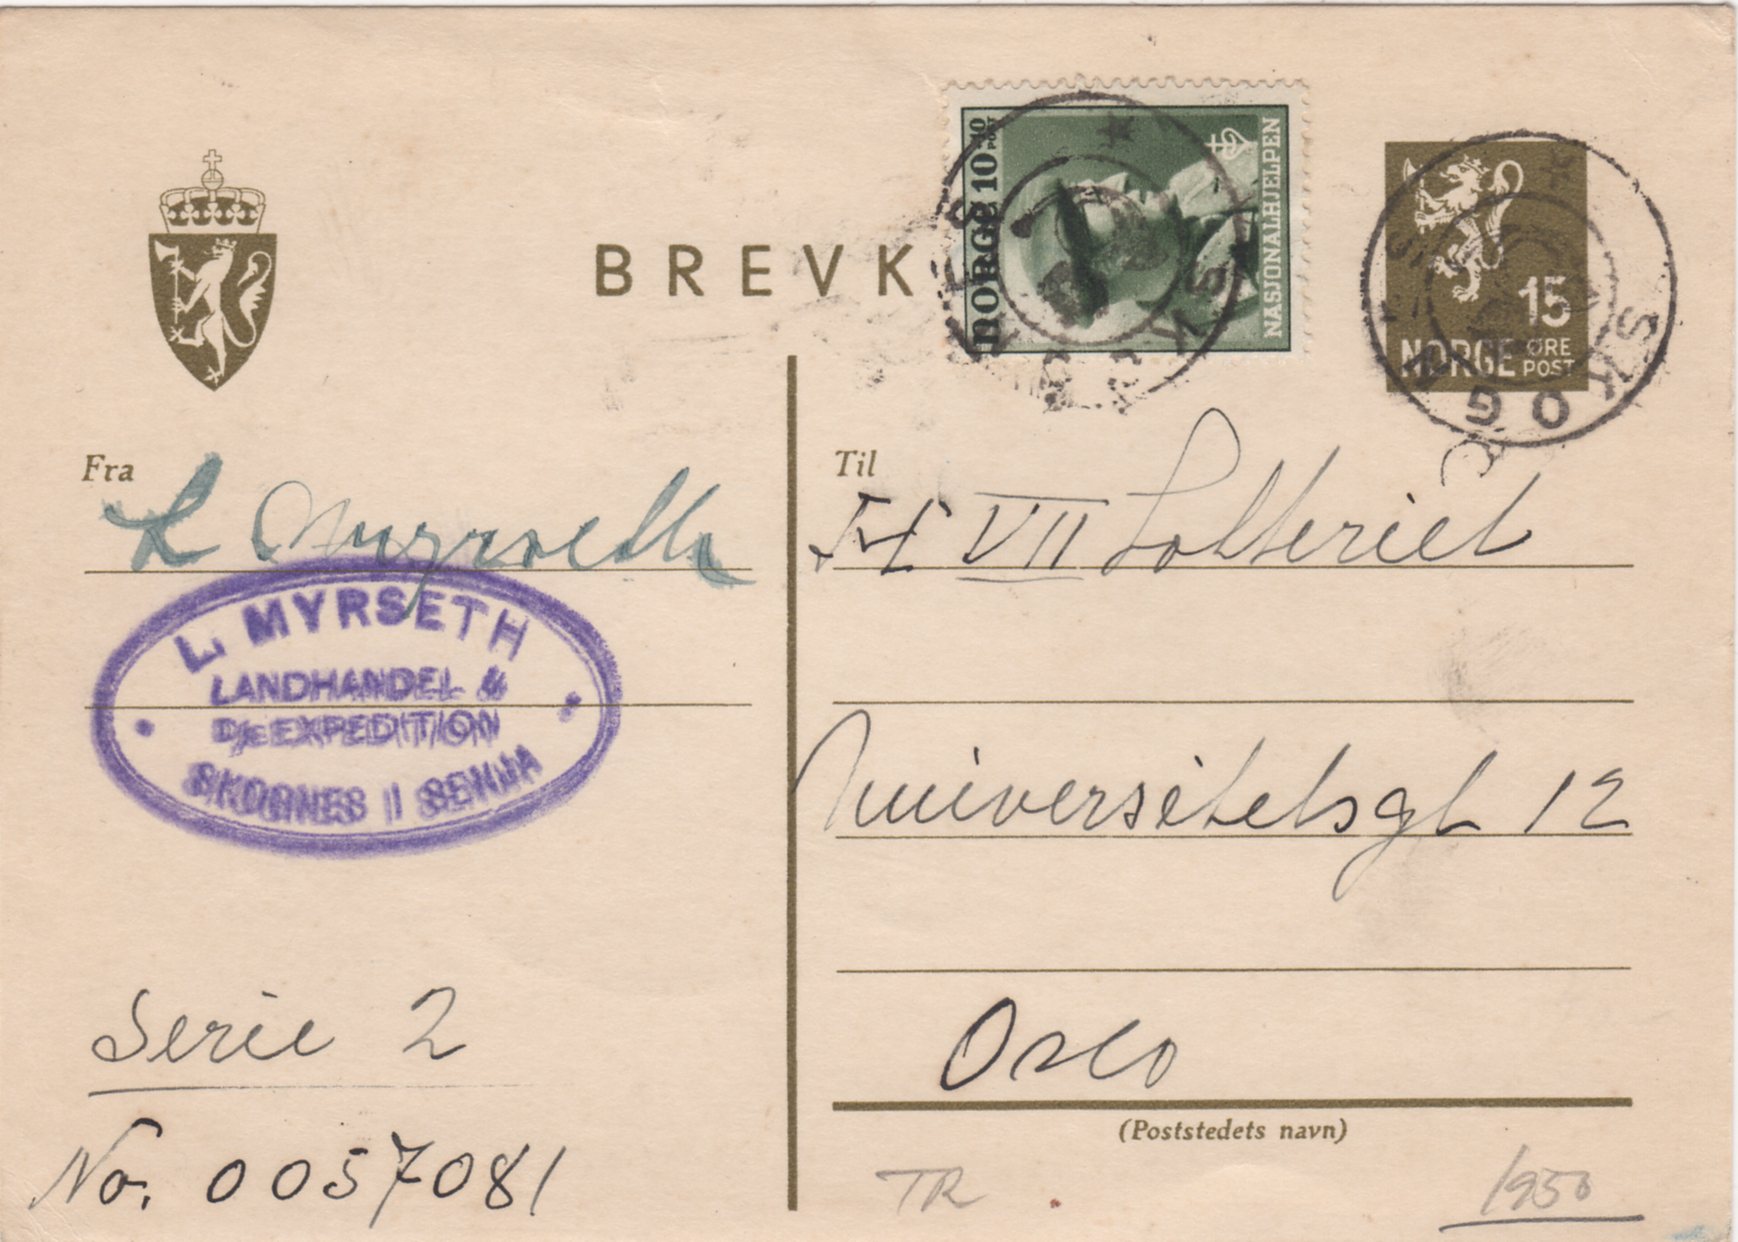 BREVK
NORGE 10+10
NASJONALHJELPEN
15
NORGE ØRE POST
SKOGNES
Fra
L Myrseth
L. MYRSETH
LANDHANDEL &
D/s EXPEDITION
SKOGNES I SENJA
Serie 2
No. 0057081
Til
H VII Lotteriet
Universitetsgt 12
Oslo
(Poststedets navn)
TR
1950